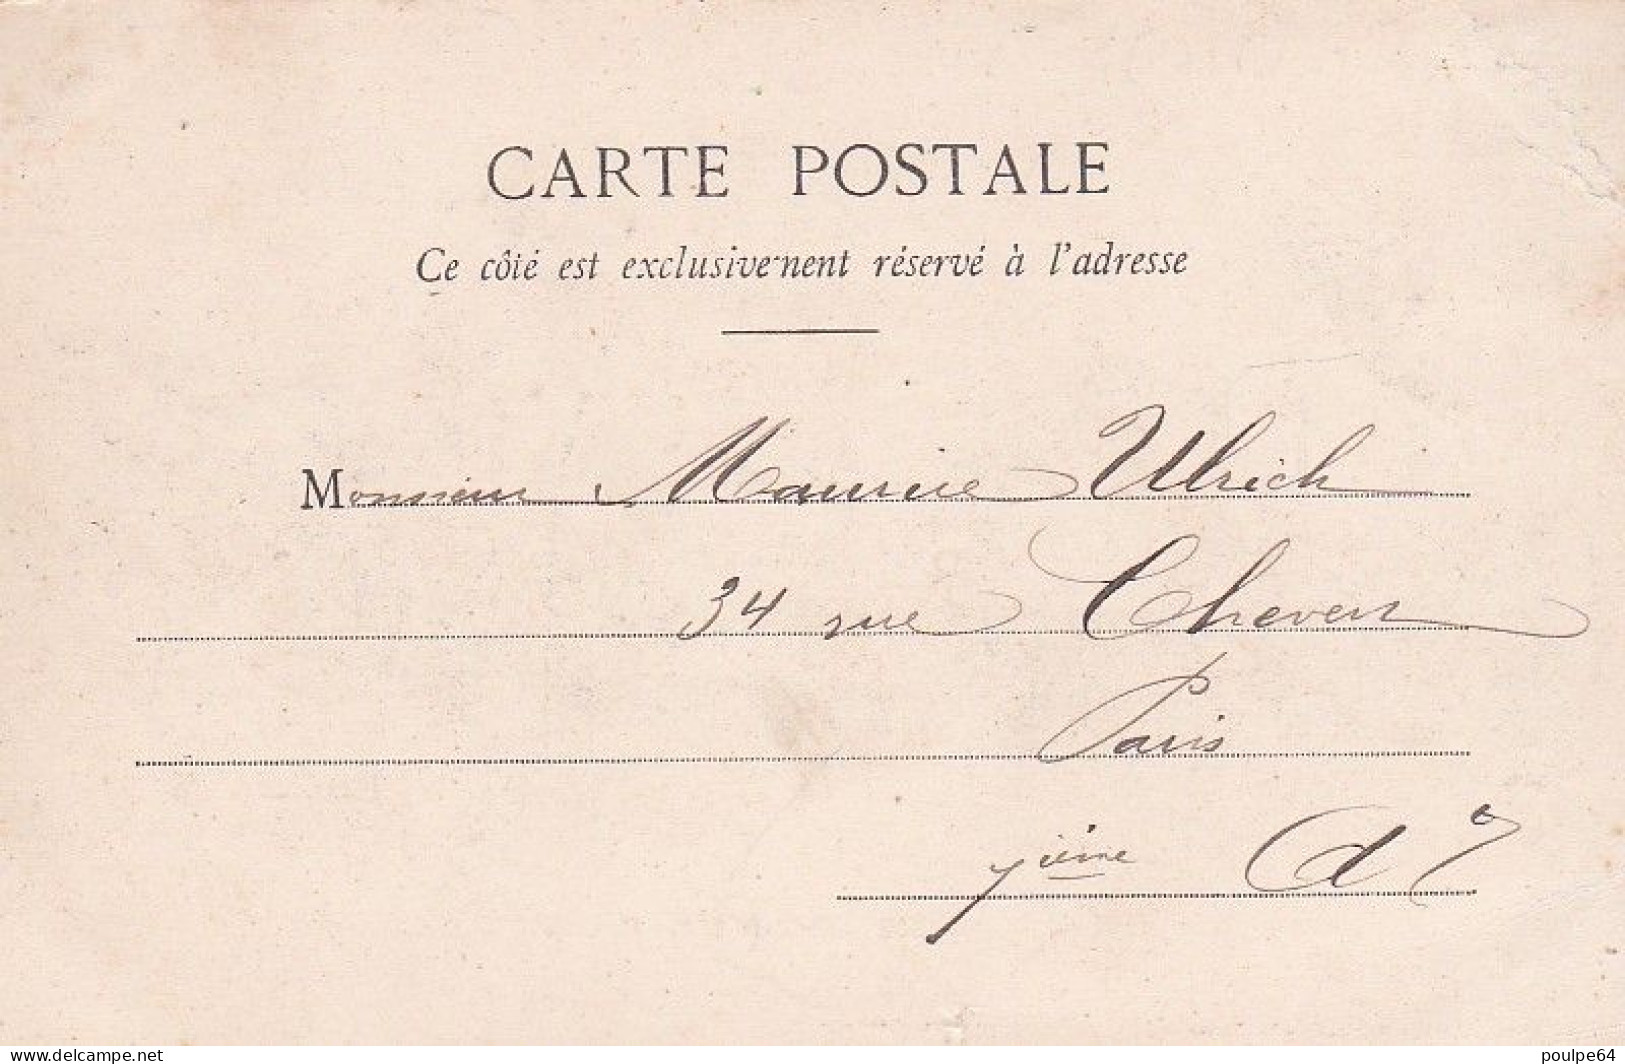 CARTE POSTALE
Ce côté est exclusivement réservé à l'adresse
Monsieur Maurice Ulrich
34 rue Chevert
Paris
7ième
delcampe.net
poulpe64